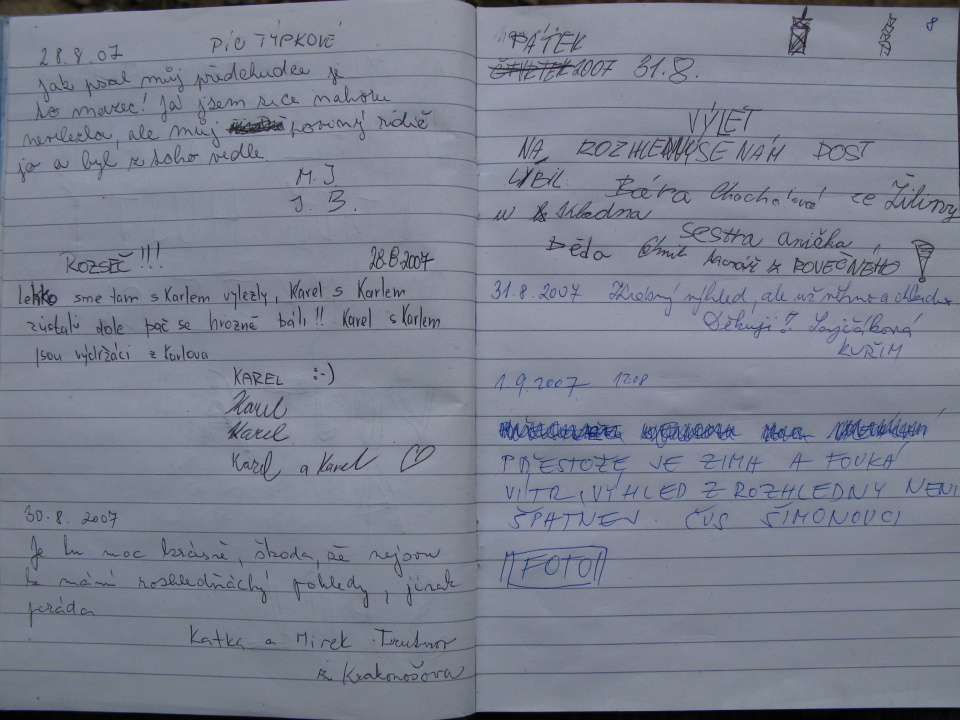 28.8.07 PÍČO TÝPKOVÉ
jak psal můj předchůdce je
to mazec! Já jsem sice nahoru
nevylezla, ale můj rovinný řidič
jo a byl z toho vedle.
M. J.
J. B.
ROZSEČ!!! 28.8.2007
lehko sme tam s Karlem vylezly, Karel s Karlem
zůstali dole pač se hrozně báli!! Karel s Karlem
jsou vydržáci z Karlova
KAREL :-)
Karel
Karel
Karel a Karel ♡
30.8.2007
Je tu moc krásně, škoda, že nejsou
k mání rozhledňáchý pohledy, jinak
paráda
Katka a Mirek Trutnov
z Krakonošova
8
PÁTEK
2007 31.8.
VÝLET
NA ROZHLEDNY SE NÁM DOST
LÍBIL. Bára ze Žiliny
sestra anička
Děda z ROVEČNÉHO!
31.8.2007 výhled, ale
Děkuji!
KUŘIM
1.9.2007 12.08
PŘESTOŽE JE ZIMA A FOUKÁ
VÍTR, VÝHLED Z ROZHLEDNY NENÍ
ŠPATNEJ. ČUS ŠIMONOVCI
FOTO